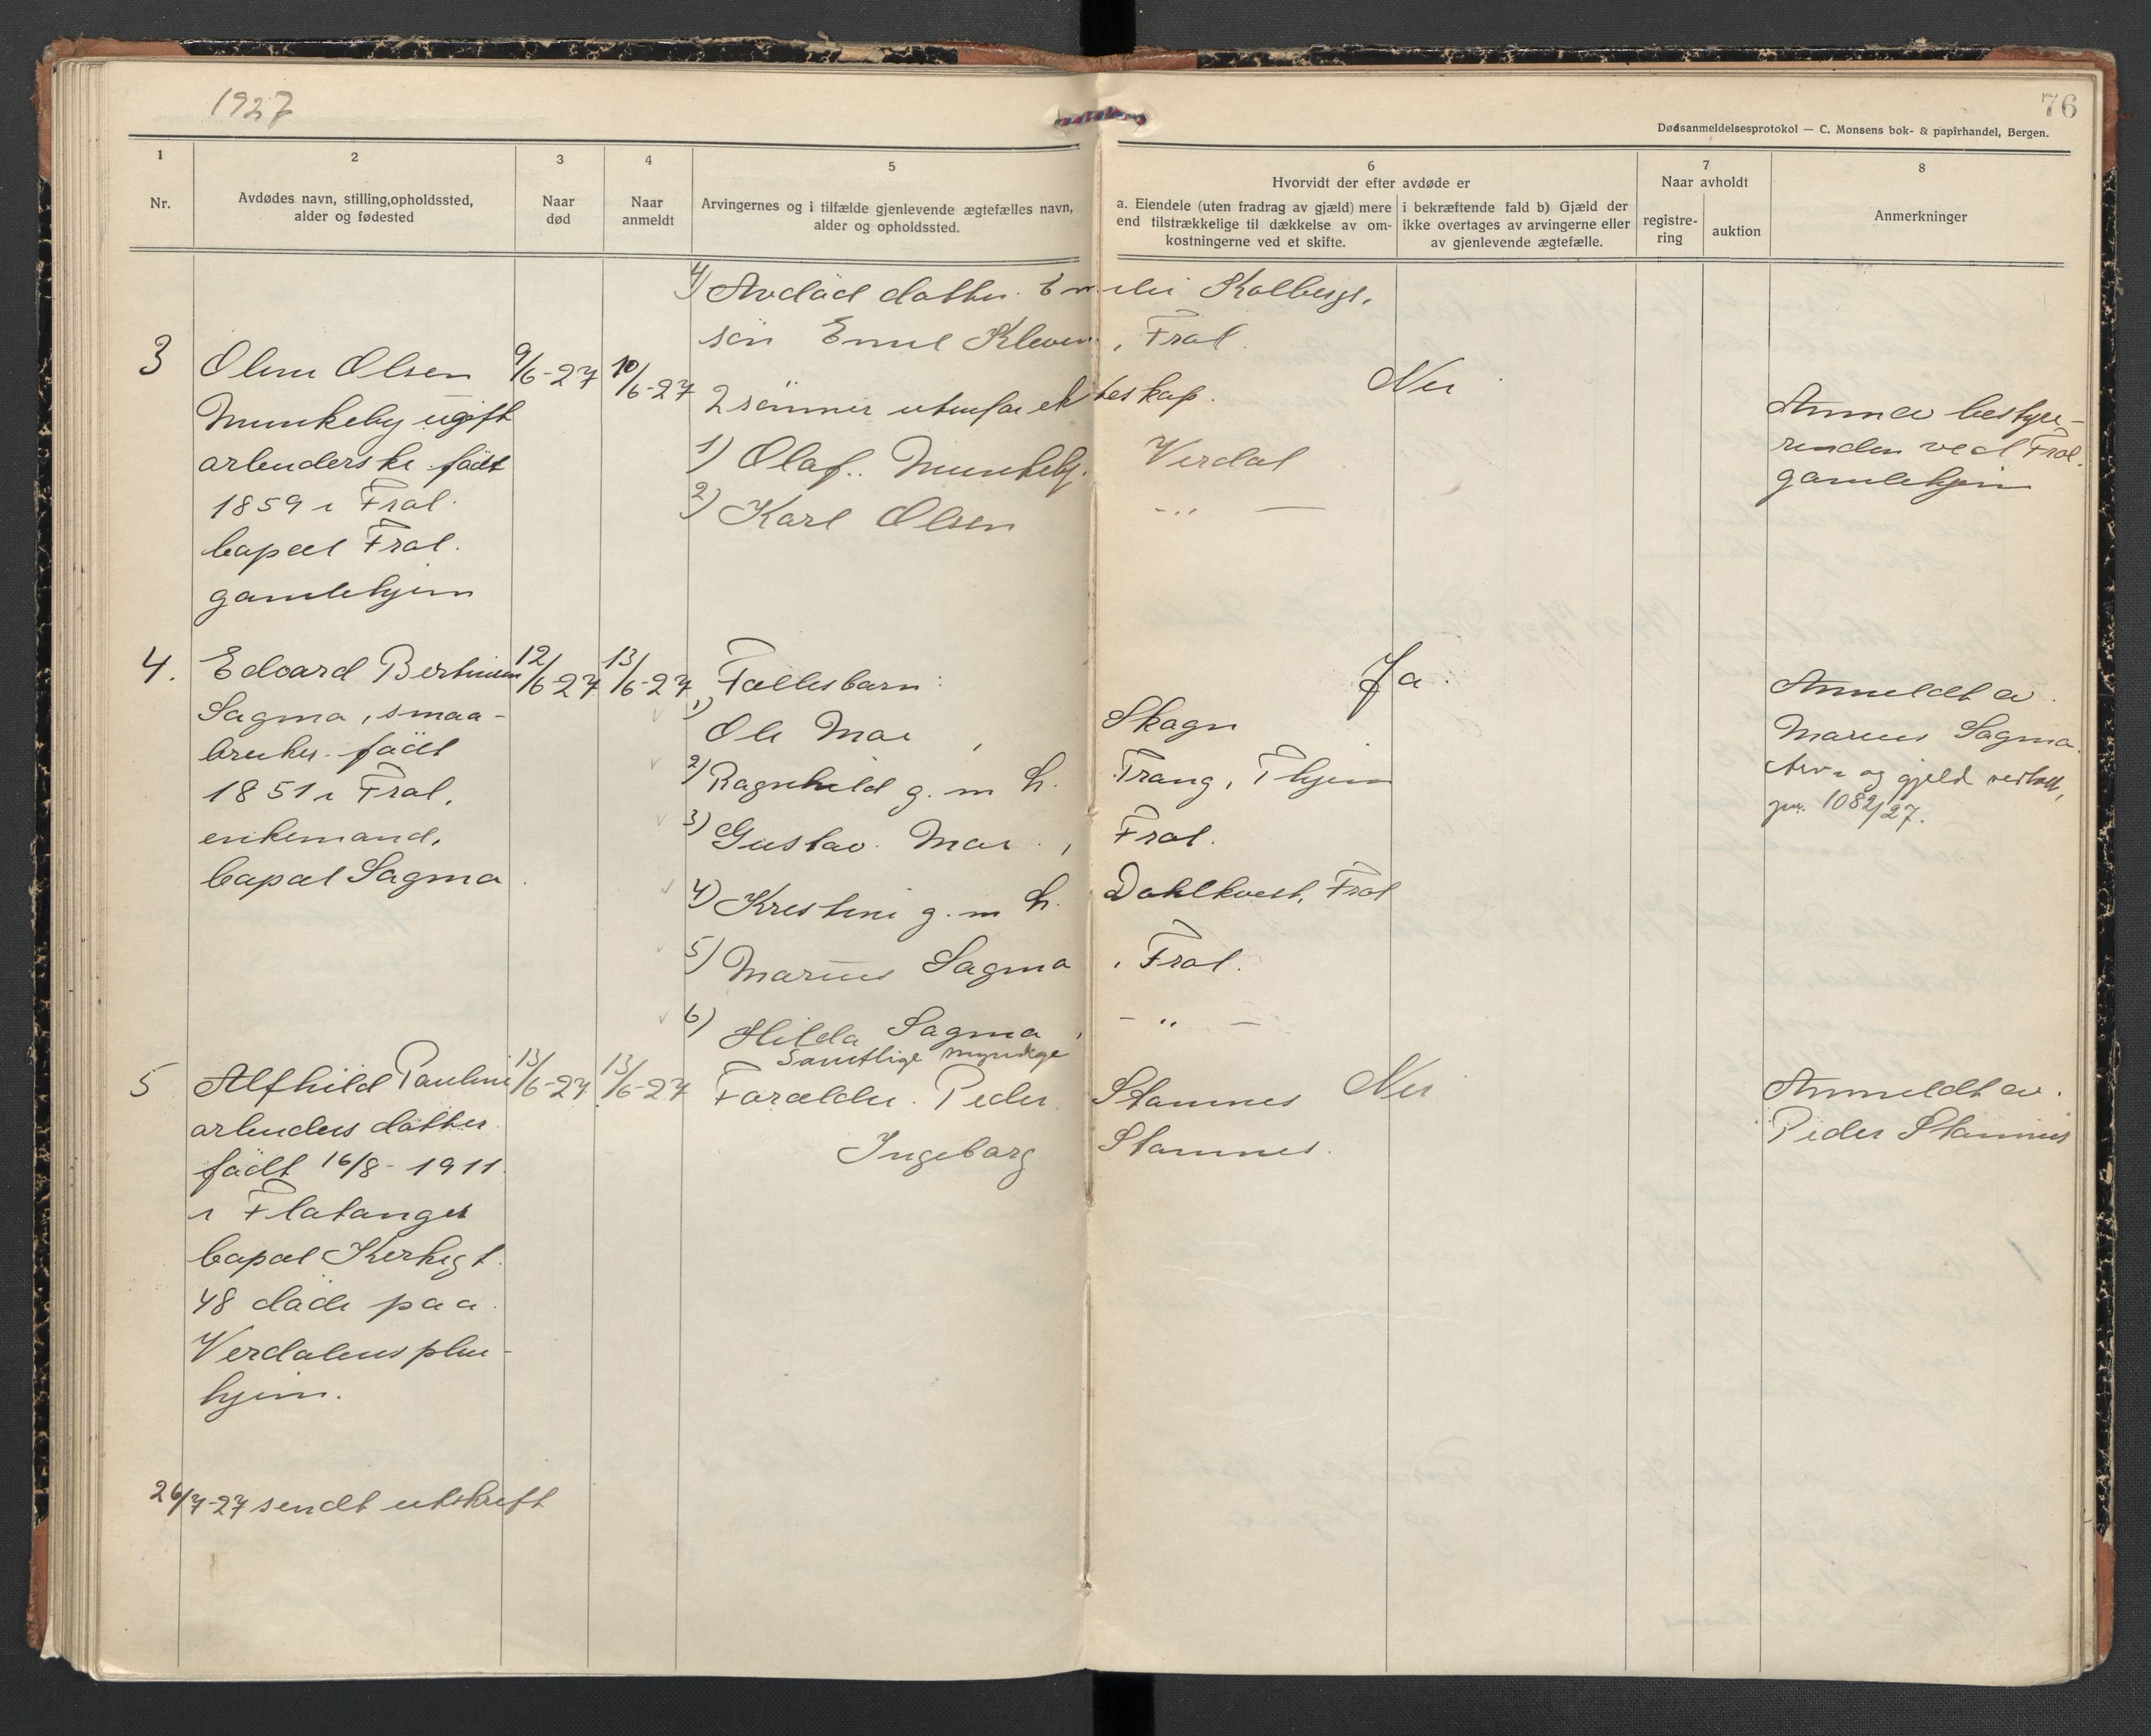 1927
76
Dødsanmeldelsesprotokol — C. Monsens bok- & papirhandel, Bergen.
1
2
3
4
5
6
7
8
Nr.
Avdødes navn, stilling, opholdssted,
alder og fødested
Naar
død
Naar
anmeldt
Arvingernes og i tilfælde gjenlevende ægtefælles navn,
alder og opholdssted.
Hvorvidt der efter avdøde er
a. Eiendele (uten fradrag av gjæld) mere
end tilstrækkelige til dækkelse av om-
kostningerne ved et skifte.
i bekræftende fald b) Gjæld der
ikke overtages av arvingerne eller
av gjenlevende ægtefælle.
Naar avholdt
registre-
ring
auktion
Anmerkninger
4) Avdöd datter Emelie Kolbergs,
sön Emil Kleven, Frol.
3
Oline Olsen
Munkeby ugift
arbeiderske född
1859 i Frol.
bopæl Frol.
gamlehjem
9/6-27
10/6-27
2 sönner utenfor ekteskap.
1) Olaf Munkeby. Verdal
2) Karl Olsen -"-
Nei
Anm av bestyre-
rinden ved Frol.
gamlehjem
4.
Edvard Bertinus
Sagmo, smaa-
bruker född
1851 i Frol,
enkemand,
bopæl Sagmo
12/6-27
13/6-27
Fællesbarn:
1) Ole Moe, Skogn
2) Ragnhild g. m. h. Trang, Thjem
3) Gustav Moe, Frol.
4) Kristine g. m. h. Dahlkvist, Frol
5) Marius Sagmo, Frol.
6) Hilda Sagmo, -"-
Samtlige myndige
Ja
Anmeldt av
Marius Sagmo.
Arv og gjeld vedtatt,
jnr. 1082/27.
5
Alfhild Pauline
arbeiders datter
född 16/8-1911
i Flatanger
bopæl Kirkegt.
48 döde paa
Verdalens pleie-
hjem.
13/6-27
13/6-27
Forældre Peder Stamnes
Ingeborg Stamnes.
Nei
Anmeldt av
Peder Stamnes
26/7-27 sendt utskrift